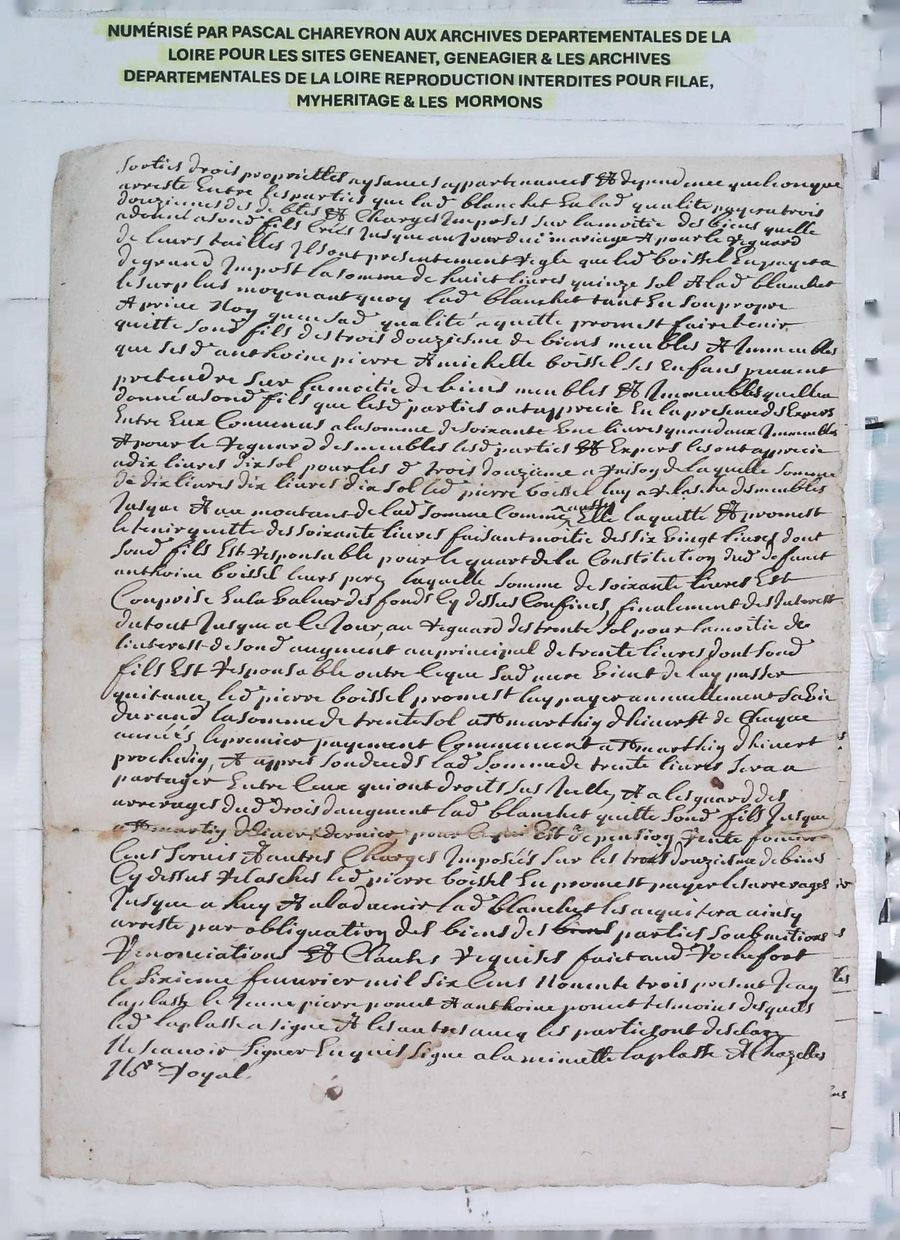 NUMÉRISÉ PAR PASCAL CHAREYRON AUX ARCHIVES DEPARTEMENTALES DE LA
LOIRE POUR LES SITES GENEANET, GENEAGIER & LES ARCHIVES
DEPARTEMENTALES DE LA LOIRE REPRODUCTION INTERDITES POUR FILAE,
MYHERITAGE & LES MORMONS
sorties drois proprietes aysances appartenances Et dependence quelconque
arreste Entre les parties que lad blanchet En lad qualite payera trois
douziemes des debtes Et Charges Imposes sur la moitie des biens quelle
a donné a sond fils Crées Jusque au Jourdui mariage Et pour le Reguard
de leurs tailles Ils ont presentement Regle que led boissel En payera
de grand Impost la somme de huict livres quinze sol Et lad blanchet
le surplus moyenant quoy lad blanchet tant En son propre
Et prive Noy que sad qualité a quitte promest faire tenir
quitte sond fils des trois douziesme de biens meubles Et Immeubles
que sesd anthoine pierre Et michelle boissel ses Enfans peuvent
pretendre sur la moitie de biens meubles Et Immeubles quelle a
donné a sond fils que lesd parties ont apprecie En la presence dExpers
Entre Eux Convenus a la somme de soixante livres quand aux Immeubles
Et pour le Reguard des meubles lesd parties Et Expers les ont apprecie
a dix livres dix sol pour les d trois douzieme a raison de laquelle somme
de dix livres dix livres dix sol led pierre boissel luy a relasche des meubles
Jusque Au montant de lad somme Comme aussy Elle la quitte Et promest
le tenir quitte des soixante livres faisant moitie des six vingt livres dont
sond fils Est Responsable pour le quart de la Constitution dud defunct
anthoine boissel leurs pere laquelle somme de soixante livres Est
Comprise En la valeur des fonds Cy dessus Confines, finalement des Interest
du tout Jusque a Ce Jour, au Reguard des trente sol pour la moitie de
linterest de sond augment au principal de trente livres dont sond
fils Est Responsable outre Ce que sad mere vient de luy passer
quitance, led pierre boissel promest luy payer annuellement sa vie
durand la somme de trente sol a St marthin dhivert de Chaque
années le premier payement Commencent a St marthin dhivert
prochain, Et appres son deceds lad somme de trente livres sera a
partager Entre Ceux qui ont droits sur Icelle, Et a lesguard des
arrerages dud drois daugment lad blanchet quitte sond fils Jusque
a St martin dhiver dernier pour Ce qui Est de pension Rente fonciere
Cens servis Et autres Charges Imposées sur les trois douziesme de biens
Cy dessus Relaschés led pierre boissel En promest payer les arrerages
Jusque a huy Et a ladvenir lad blanchet les acquitera ainsy
arreste par obliguation des biens des parties soubmitions
Renonciations Et Clauses Requises faict aud Rochefort
le sixieme feuvrier mil six Cens Nonente trois present Jean
laplasse le Jeune pierre poncet Et anthoine poncet tesmoins desquels
led laplasse a signé Et les autres avecq les parties ont desclaré
Ne scavoir signer Enquis signe a la minutte laplasse Et Chazelles
Nore Royal.